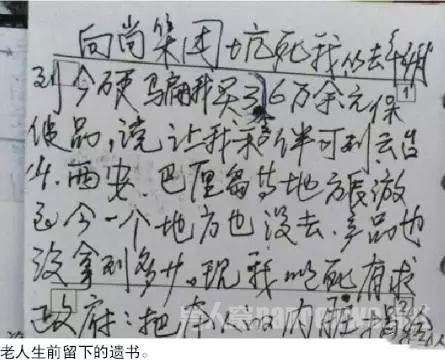 向尚集团坑死我的去年8月
到今硬骗我买了6万余元保
健品,说让我和老伴可到云台
山.西安.巴厘岛等地方旅游
至今一个地方也没去.产品也
没拿到多少.现我以死有求
政府:把本人的内脏捐给
1
老人生前留下的遗书。